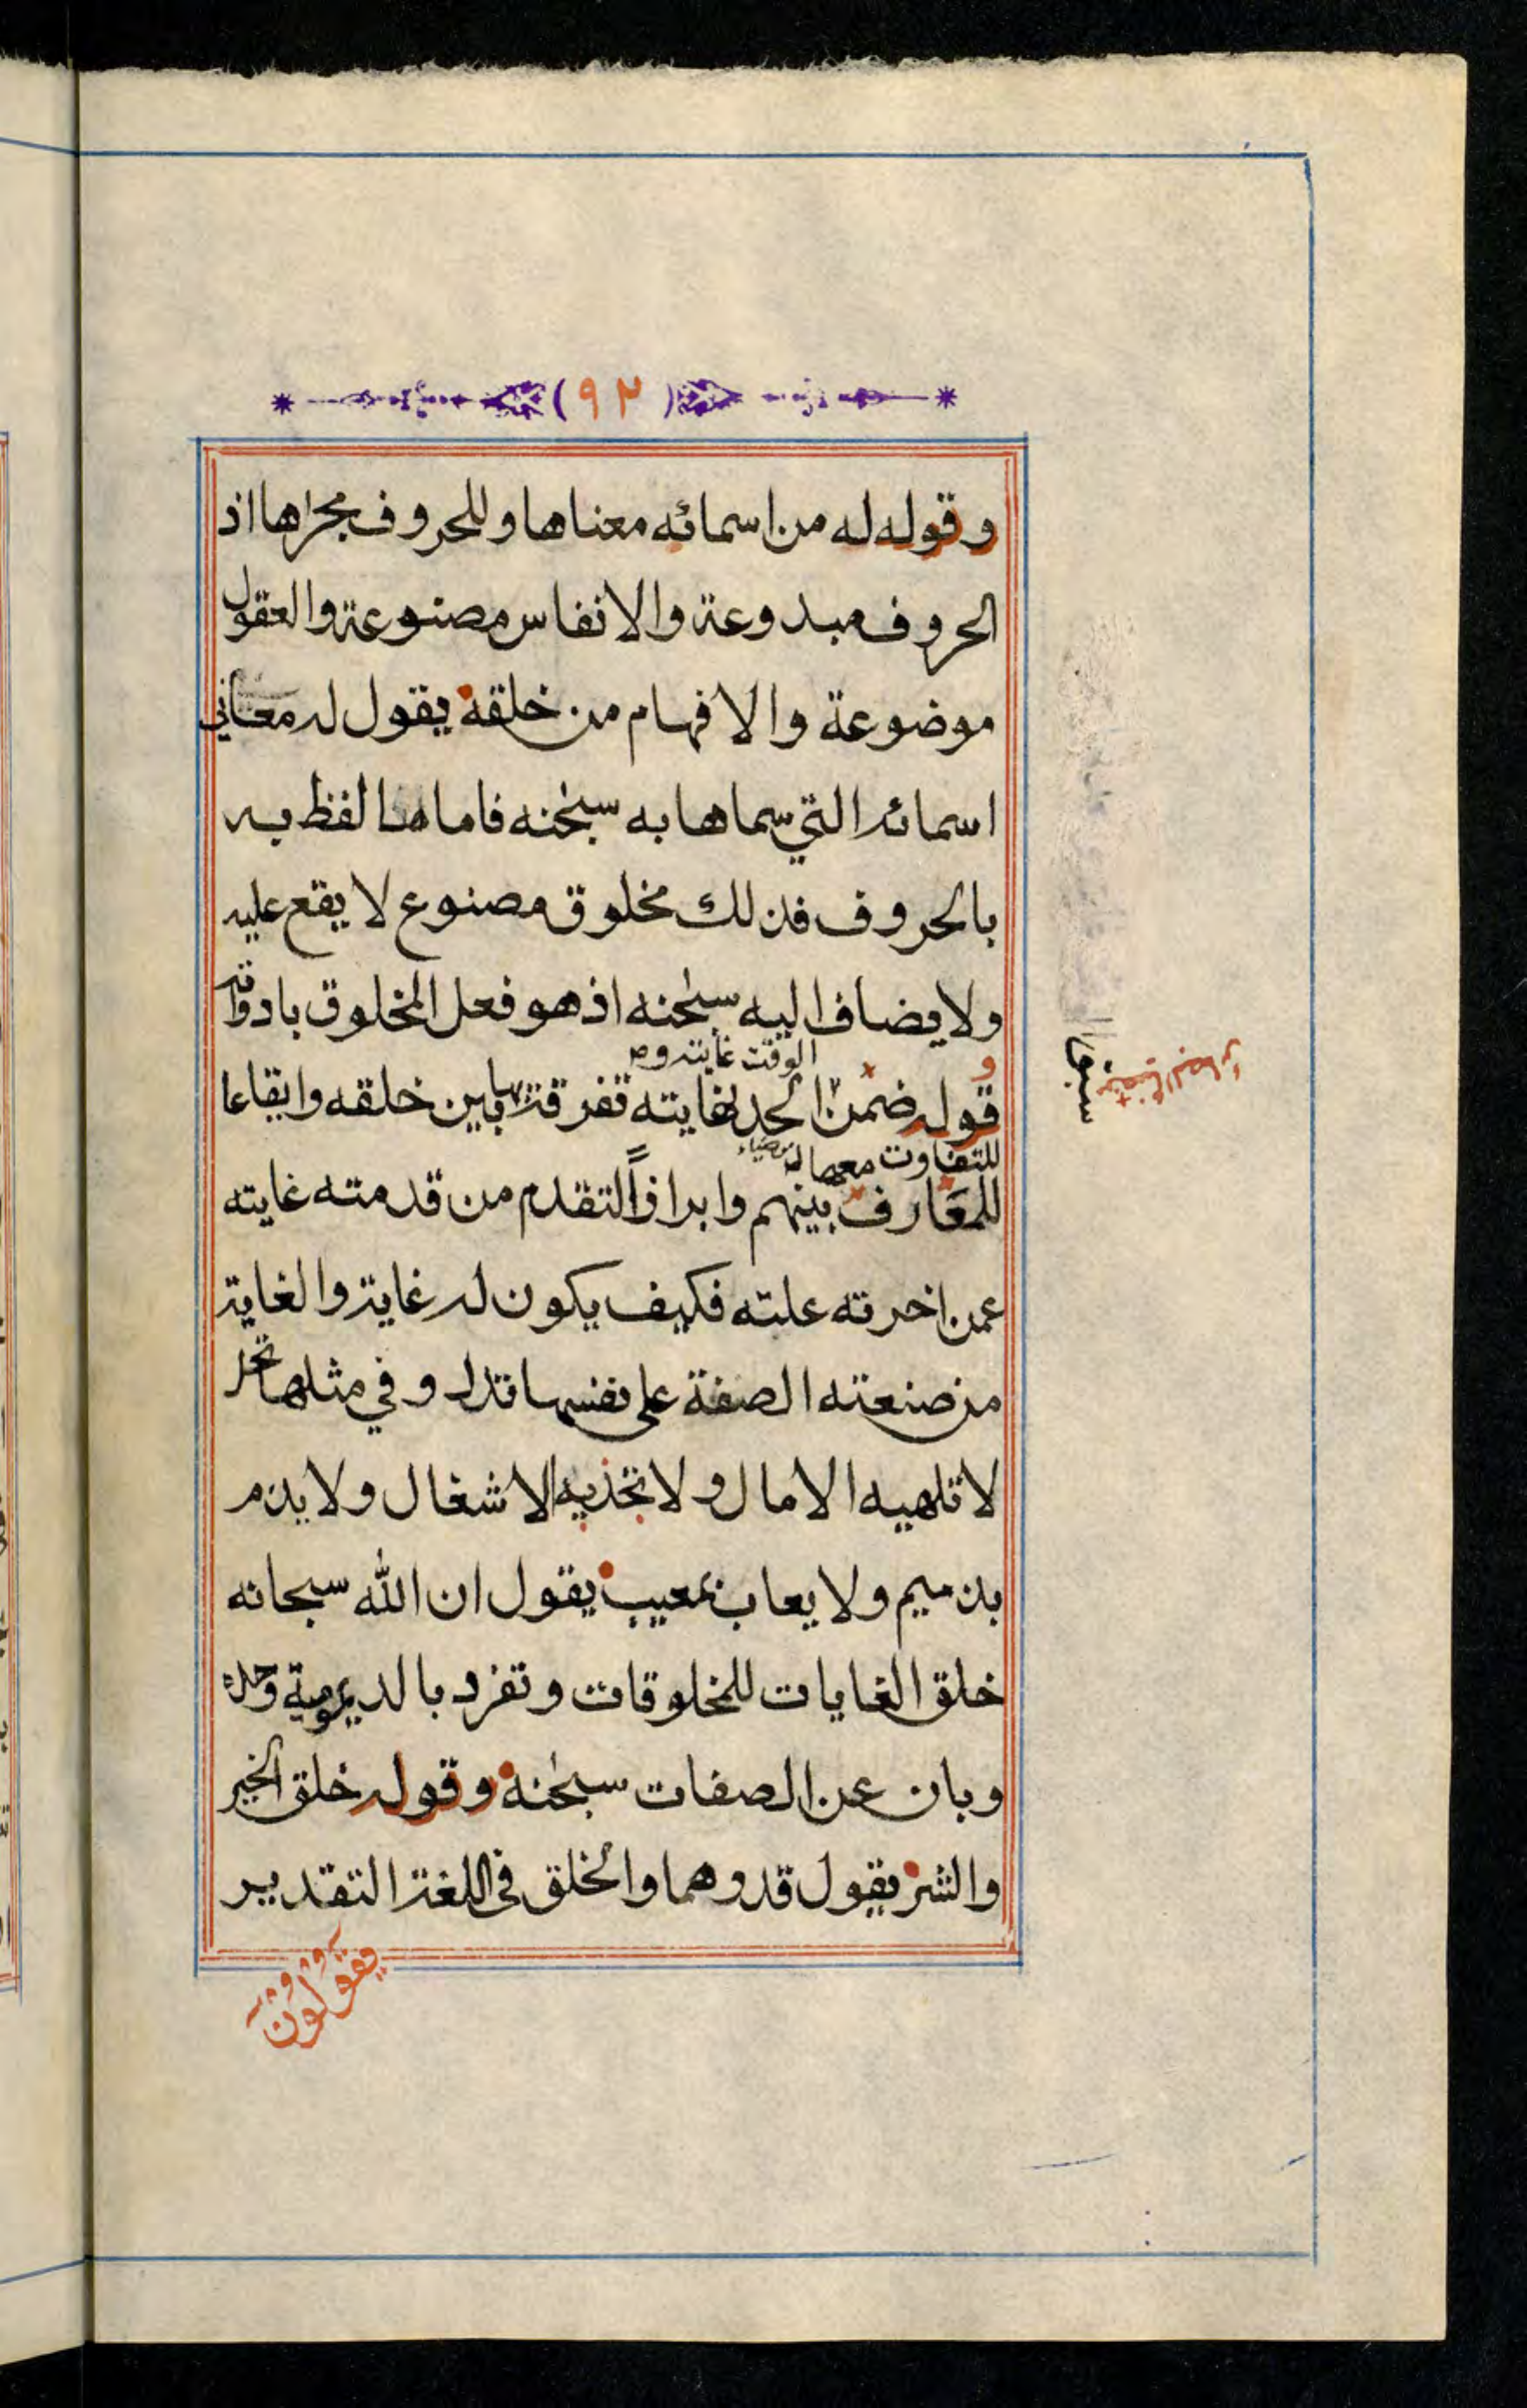 (٩٢)
وقوله له من اسمائه معناها وللحروف مجراها اذ
الحروف مبدوعة والانفاس مصنوعة والعقول
موضوعة والافهام من خلقه يقول له معاني
اسمائه التي سماها به سبحنه فاما ما لفظ به
بالحروف فذلك مخلوق مصنوع لا يقع عليه
ولا يضاف اليه سبحنه اذ هو فعل المخلوق بادواته
الوقت غايته وص
وقوله ضمن الحد نهايته تفرقة بها بين خلقه وايقاعا
للتفاوت
للمعارف بينهم وابرازاً لتقدم من قدمته غايته
عمن اخرته علته فكيف يكون له غاية والغاية
من صنعته الصفة على نفسها تدل وفي مثلها تحل
لا تلهيه الامال ولا تجذبه الاشغال ولا يذم
بذميم ولا يعاب بمعيب يقول ان الله سبحانه
خلق الغايات للمخلوقات وتفرد بالديمومية وحده
وبان عن الصفات سبحنه وقوله خلق الخير
والشر يقول قدرهما والخلق في اللغة التقدير
يقولون